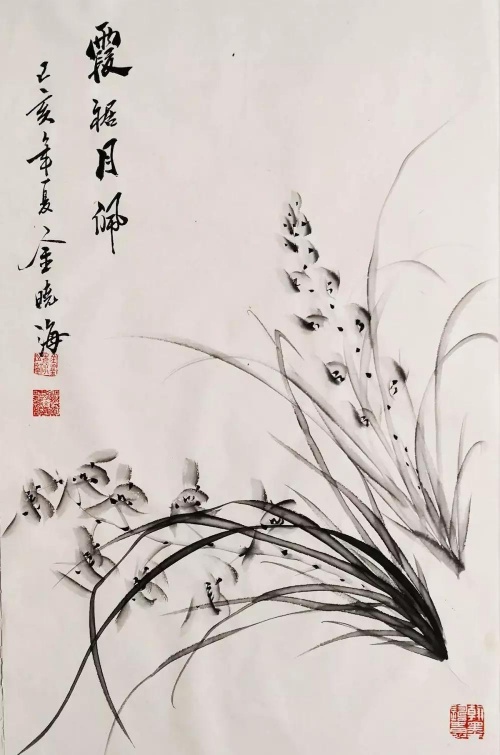 霞裾月佩
己亥年夏 金晓海